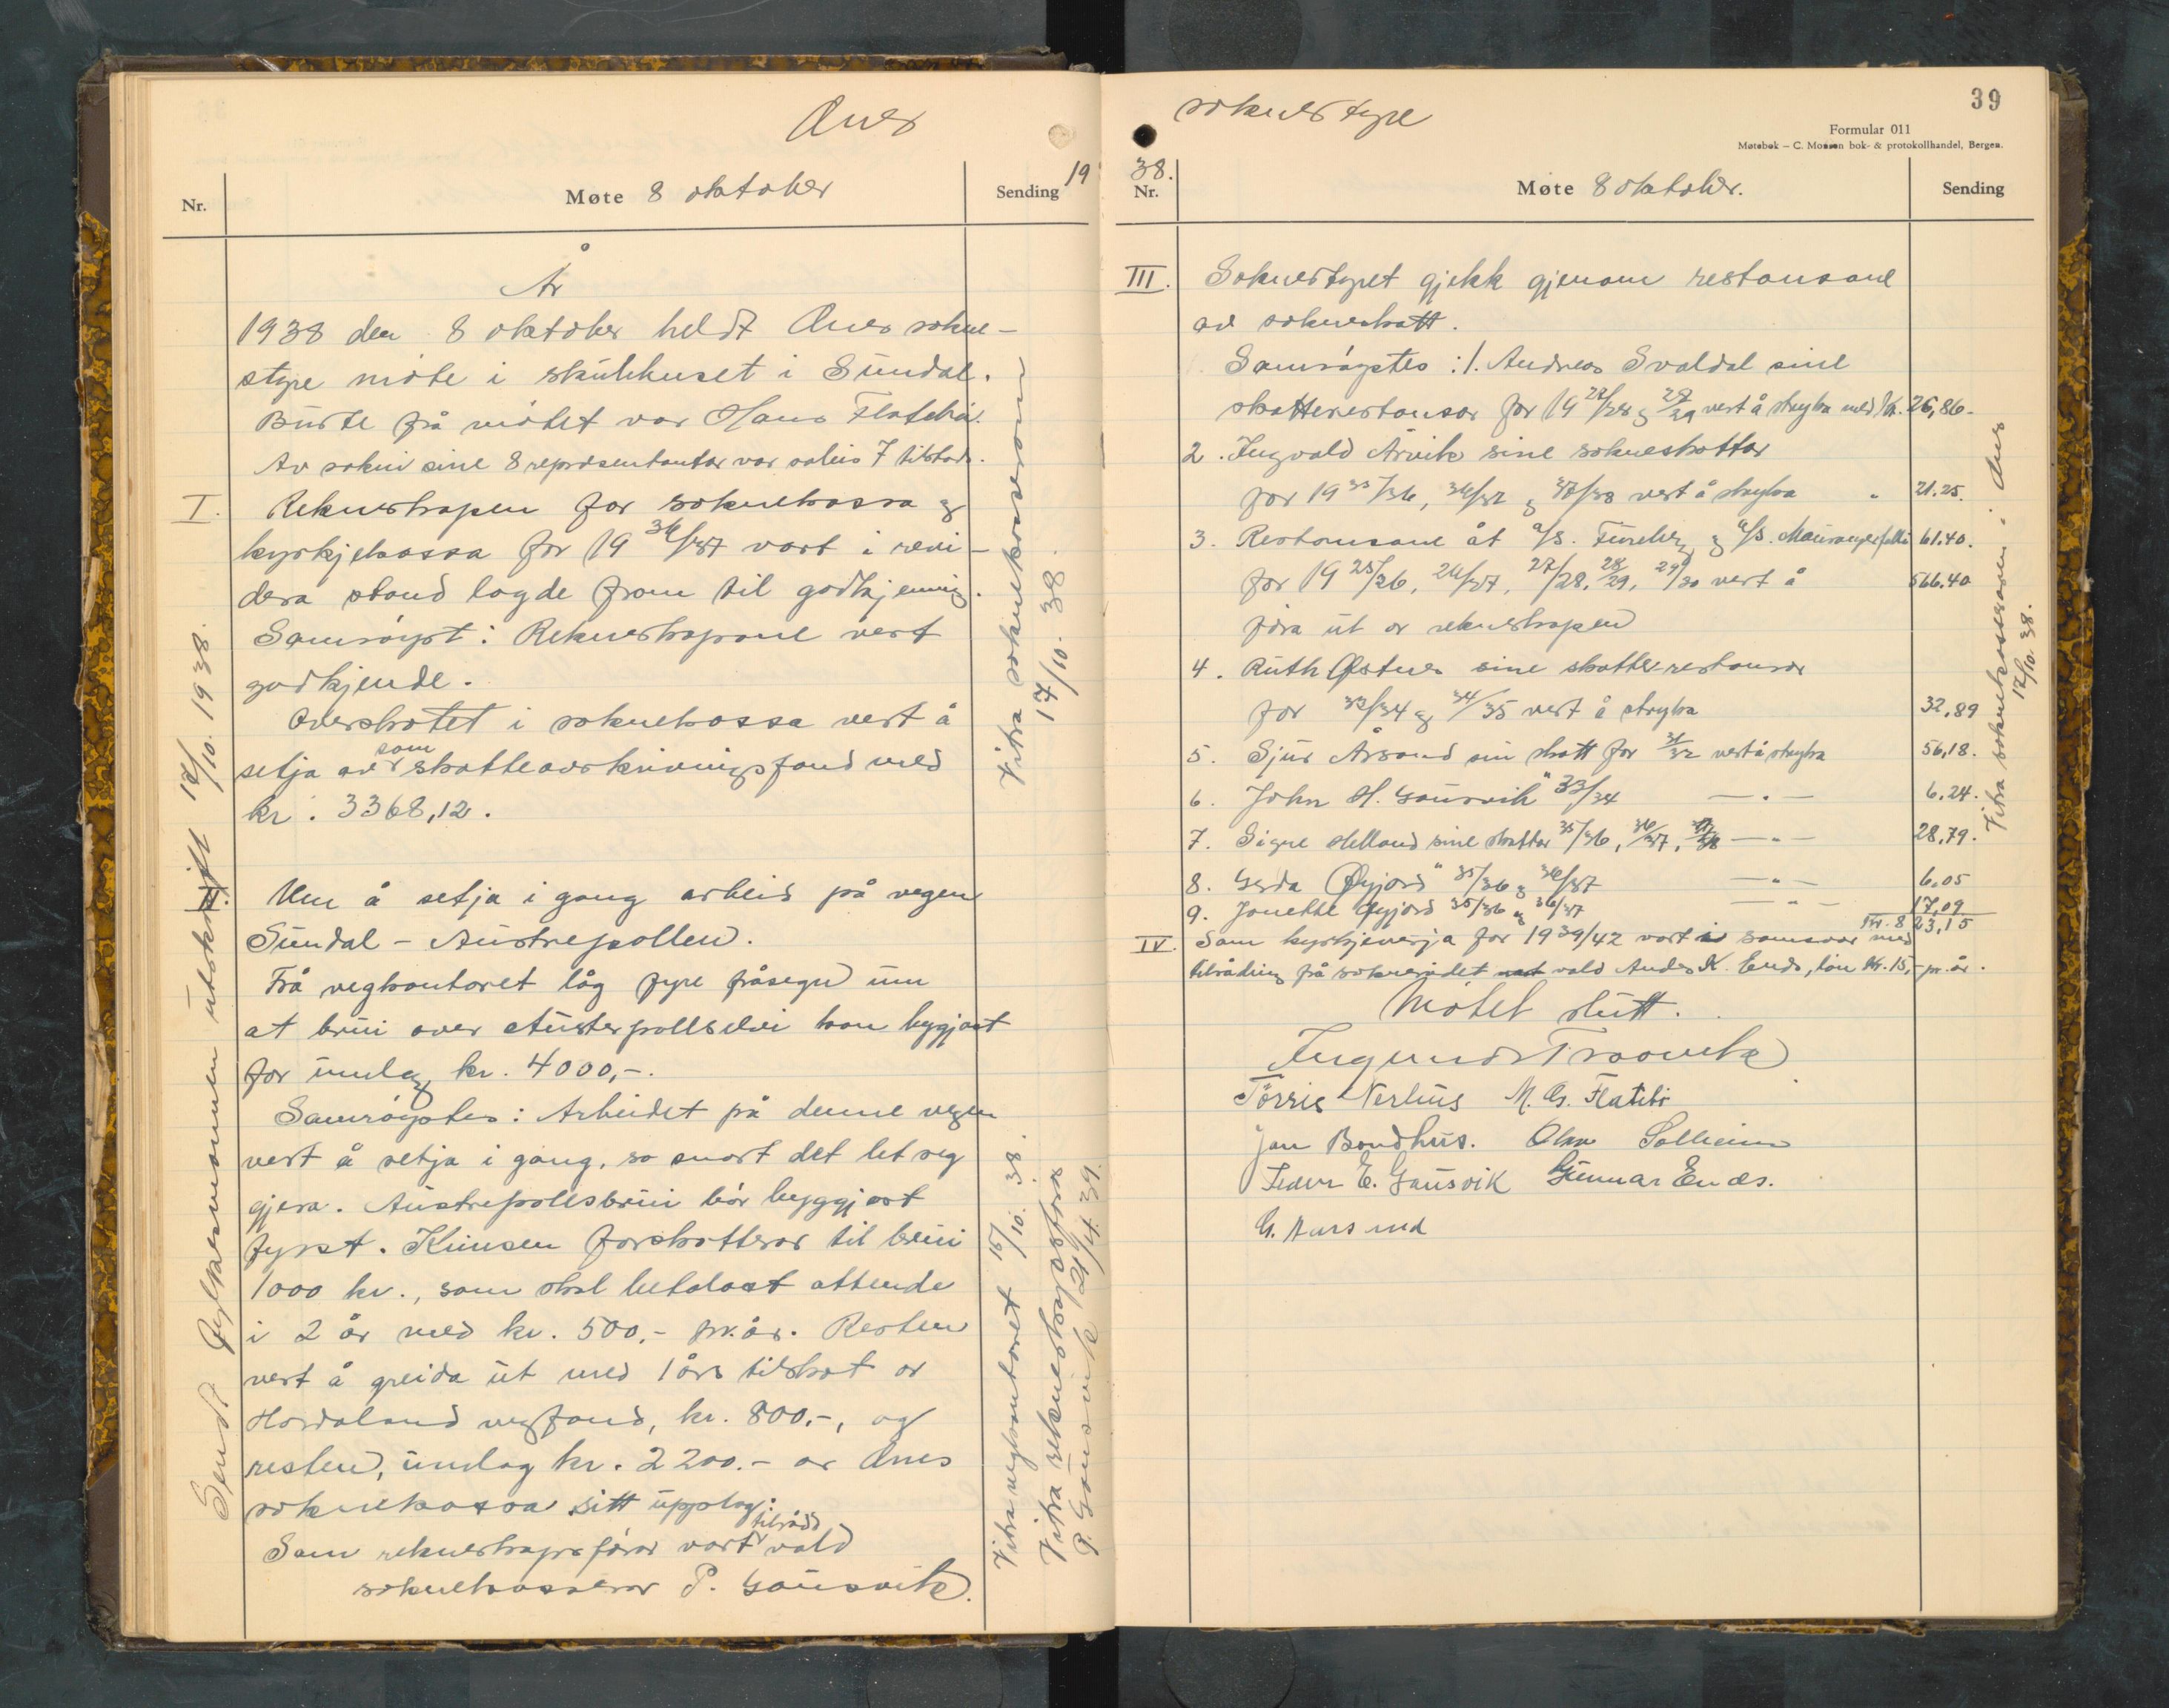 Ænes
Nr.
Møte 8 oktober
Sending
19
År
1938 den 8 oktober heldt Ænes sokne-
styre møte i skulehuset i Sundal.
Burte frå møtet var Hans Flatebø.
Av sokni sine 8 representantar var soleis 7 tilstads.
I. Rekneskapen for soknekassa og
kyrkjekassa for 19 36/37 vart i revi-
dera stand lagde fram til godkjenning.
Samrøyst: Rekneskapane vert
godkjende.
Overskotet i soknekassa vert å
setja av som skatteavskrivingsfond med
kr. 3368,12.
II. Um å setja i gang arbeid på vegen
Sundal - Austrepollen.
Frå vegkontoret låg fyre fråsegn um
at brui over Austerpollselvi kan byggjast
for umlag kr. 4000,-.
Samrøystes: Arbeidet på denne vegen
vert å setja i gang, so snart det let seg
gjera. Austrepollsbrui bør byggjast
fyrst. Kunsen forskotterar til brui
1000 kr., som skal betalast attende
i 2 år med kr. 500,- pr. år. Resten
vert å greida ut med 1 års tilskot or
Hordaland vegfond, kr. 800,-, og
resten, umlag kr. 2200.- or Ænes
soknekassa sitt upplag.
Som rekneskapsførar vart tilrådd vald
soknekasserar P. Gausvik.
Sendt fylkesmannen utskrift 17/10. 1938.
Vitra soknekasseraren 17/10. 38.
Vitra vegkontoret 15/10. 38.
Vitra rekneskapsførar
P. Gausvik 21/4. 39.
soknestyre
39
Formular 011
Møtebok — C. Monsen bok- & protokollhandel, Bergen.
38.
Nr.
Møte 8 oktober.
Sending
III. Soknestyret gjekk gjenom restansane
av sokneskatt.
Samrøystes: 1. Andreas Svaldal sine
skatterestansar for 19 27/28 og 28/29 vert å stryka med kr. 26,86.
2. Ingvald Årvik sine sokneskattar
for 19 35/36, 36/37 og 37/38 vert å stryka " 21.25.
3. Restansane åt A/S. Fureberg og A/S. Maurangerfalli 61.40.
for 19 25/26, 26/27, 27/28, 28/29, 29/30 vert å 566.40
føra ut or rekneskapen
4. Ruth Østnes sine skatte-restansar
for 33/34 og 34/35 vert å stryka 32,89
5. Sjur Årsand sin skatt for 31/32 vert å stryka 56,18.
6. John H. Gausvik " 33/34 — " — 6.24.
7. Signe Helland sine skattar 35/36, 36/37, 37/38 — " — 28,79.
8. Gerda Øyjord " 35/36 og 36/37 — " — 6.05
9. Jonette Øyjord 35/36 og 36/37 — " — 17,09
Kr. 823,15
IV. Som kyrkjeverja for 1939/42 vart i samsvar med
tilråding frå soknerådet vald Anders K. Enes, løn kr. 15,- pr. år.
Møtet slutt.
Ingmund Traavik
Tørris Nerhus M. G. Flatebø
Jan Bondhus. Olav Solheim
Peder E. Gausvik Gunnar Enes.
G. Aarsand
Vitra soknekasseraren i Ænes
17/10. 38.